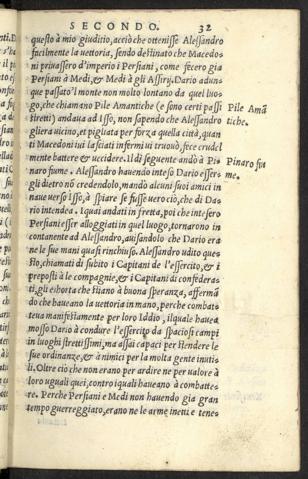 SECONDO. 32
questo à mio giuditio, acciò che ottenisse Alessandro
facilmente la uettoria, sendo destinato che Macedo-
ni priuassero d'imperio i Persiani, come fecero gia
Persiani à Medi, & Medi à gli Assirij. Dario adun-
que passato'l monte non molto lontano da quel luo-
go, che chiamano Pile Amantiche (e sono certi passi
stretti) andaua ad Isso, non sapendo che Alessandro
gliera uicino, et pigliata per forza quella città, quan
ti Macedoni iui lasciati infermi ui trouò, fece crudel
mente battere & uccidere. Il dì seguente andò à Pi-
naro fiume. Alessandro hauendo inteso Dario esser-
gli dietro nō credendolo, mandò alcuni suoi amici in
naue uerso Isso, à spiare se fusse uero ciò, che di Da-
rio intendea. I quai andati in fretta, poi che intesero
Persiani esser alloggiati in quel luogo, tornarono in
contanente ad Alessandro, auisandolo che Dario era
ne le sue mani quasi rinchiuso. Alessandro udito que
sto, chiamati di subito i Capitani de l'essercito, & i
preposti à le compagnie, & i Capitani di confedera-
ti, gli eshorta che stiano à buona speranza, affermā
do che haueano la uettoria in mano, perche combat-
teua manifestamente per loro Iddio, ilquale hauea
mosso Dario à condure l'essercito da spaciosi campi
in luoghi strettissimi, ma assai capaci per stendere le
sue ordinanze, & à nimici per la molta gente inuti-
li. Oltre ciò che non erano per ardire ne per ualore à
loro uguali quei, contro iquali haueano à combatte-
re. Perche Persiani e Medi non hauendo gia gran
tempo guerreggiato, erano ne le arme inetti e tene-
Pile Amā
tiche.
Pinaro fiu
me.